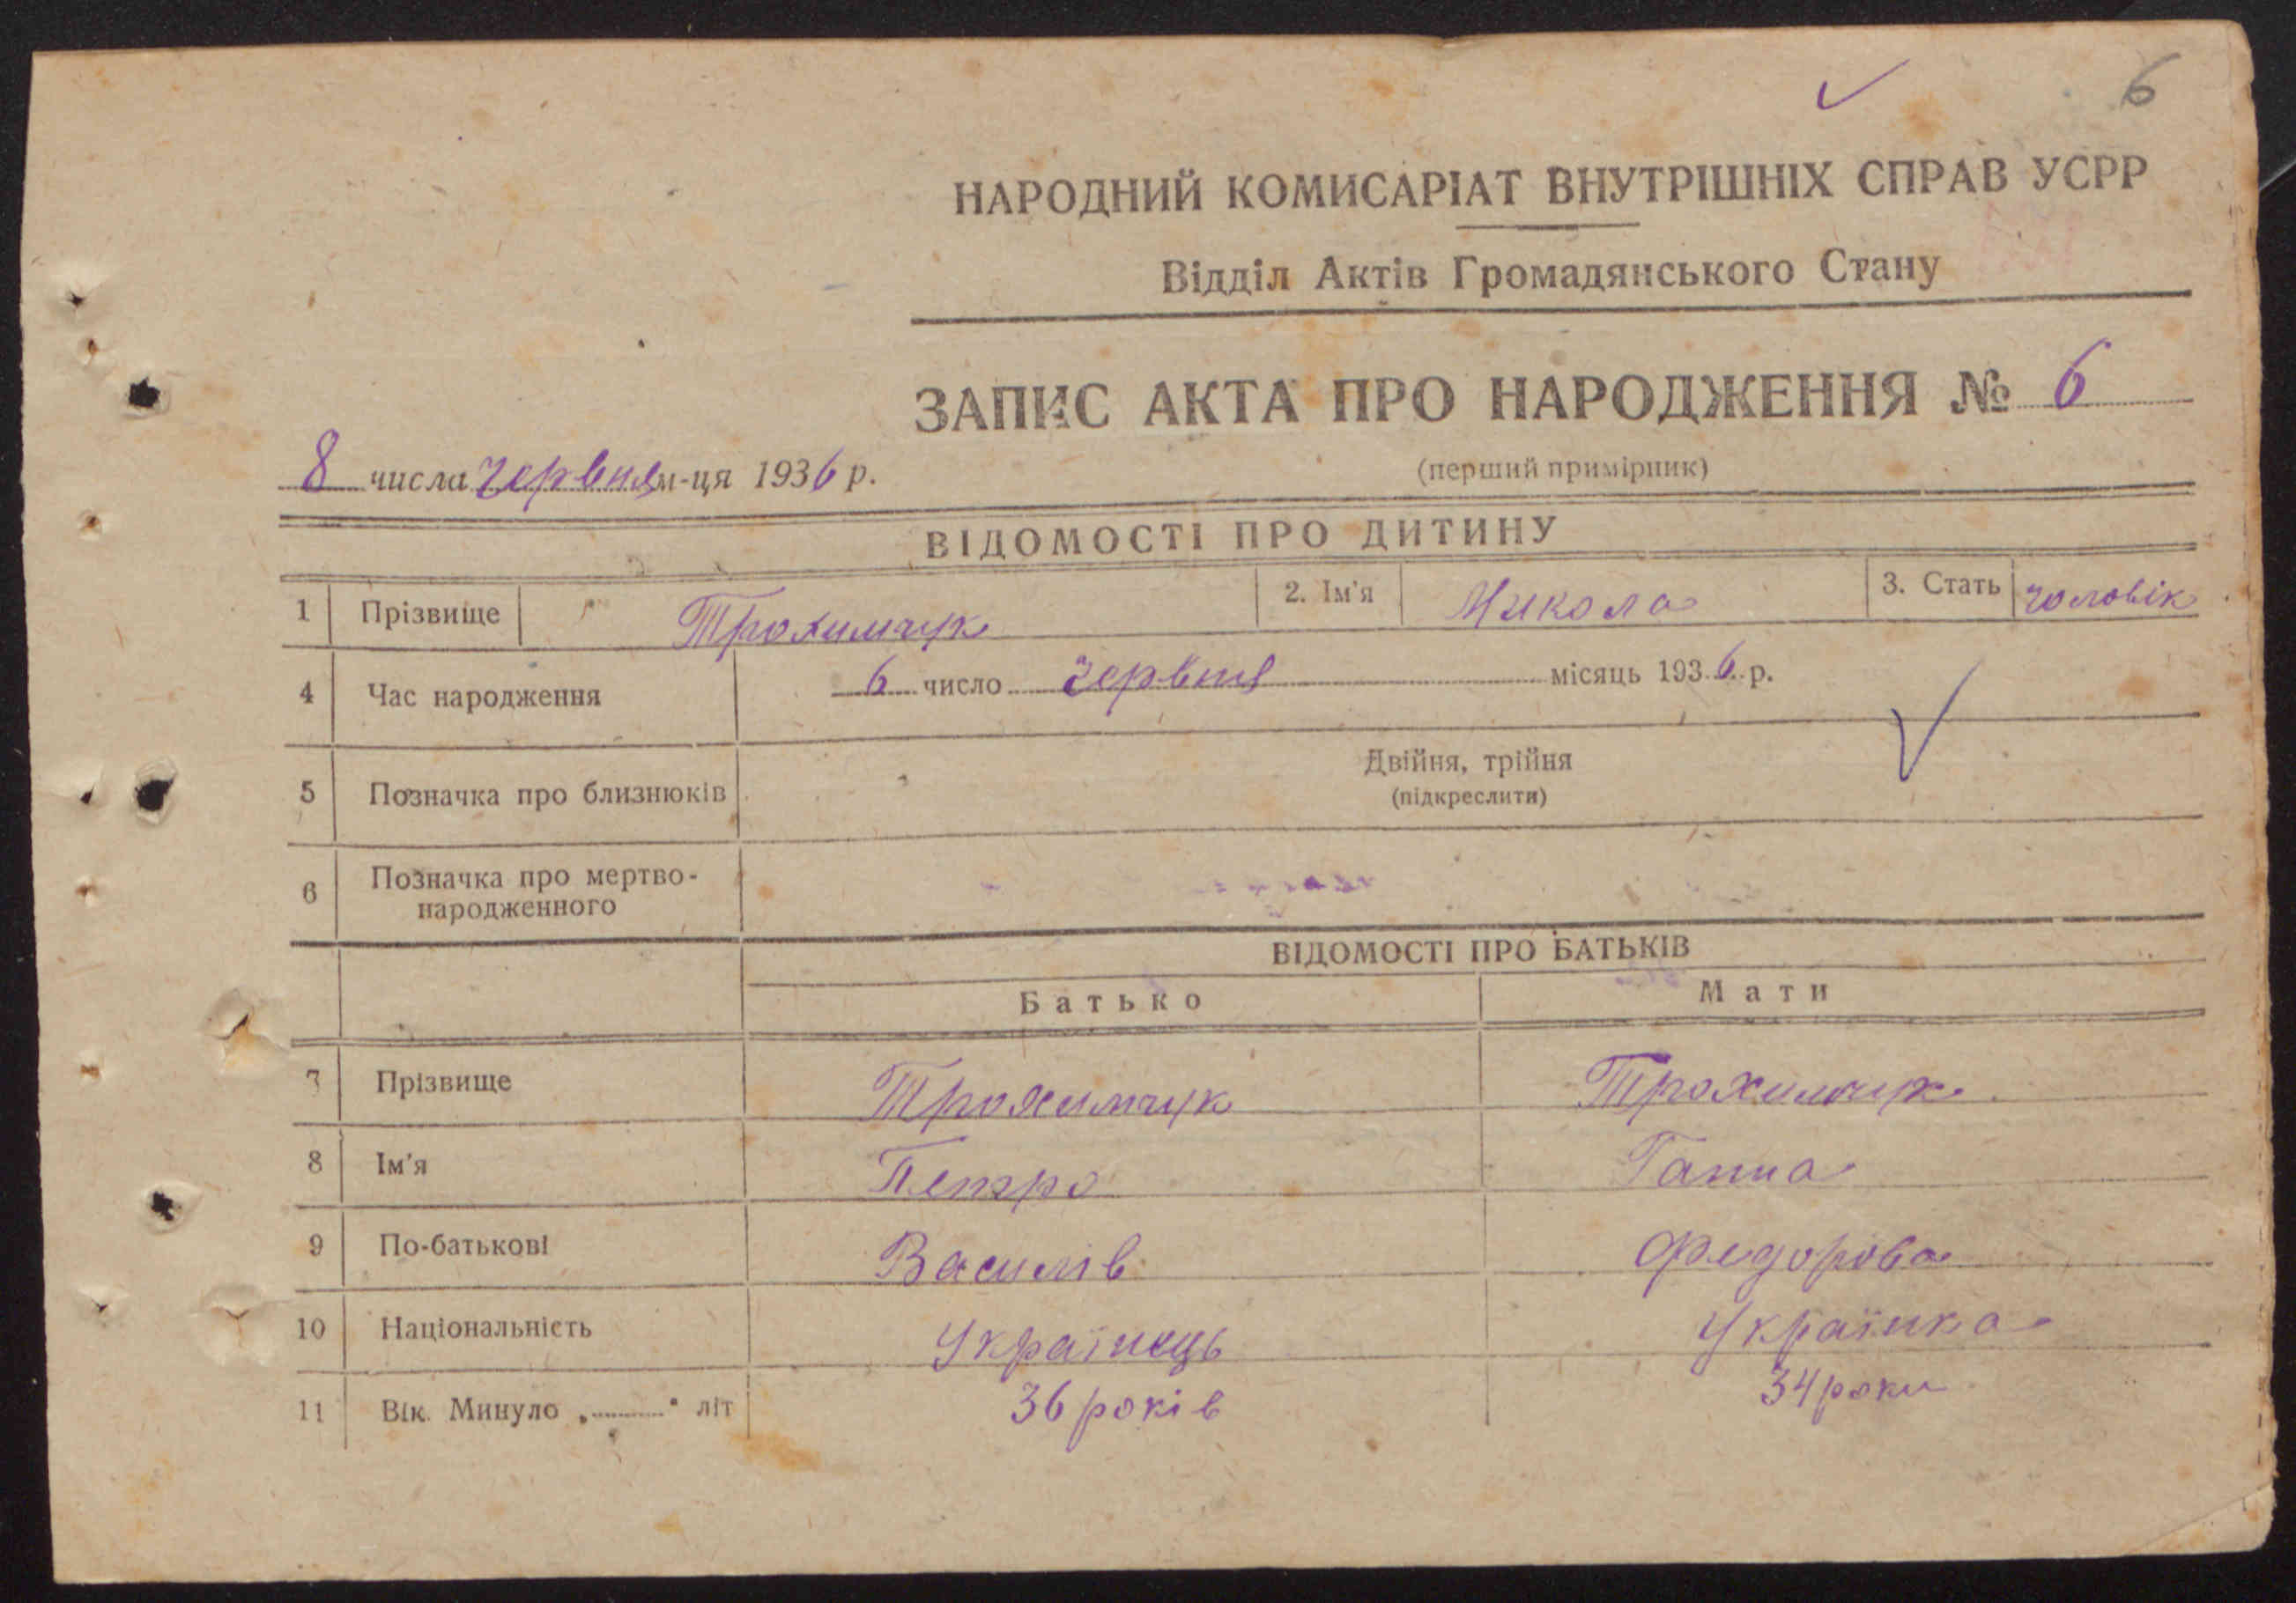 6
НАРОДНИЙ КОМИСАРІАТ ВНУТРІШНІХ СПРАВ УСРР
Відділ Актів Громадянського Стану
ЗАПИС АКТА ПРО НАРОДЖЕННЯ № 6
(перший примірник)
8 числа червня м-ця 1936 р.
ВІДОМОСТІ ПРО ДИТИНУ
1 Прізвище Трохимчук 2. Ім'я Микола 3. Стать чоловік
4 Час народження 6 число червня місяць 1936 р.
5 Позначка про близнюків Двійня, трійня
(підкреслити)
6 Позначка про мертво-
народженного
ВІДОМОСТІ ПРО БАТЬКІВ
Батько Мати
7 Прізвище Трохимчук Трохимчук
8 Ім'я Петро Ганна
9 По-батькові Василів Федорова
10 Національність Українець Українка
11 Вік. Минуло „ " літ 36 років 34 роки